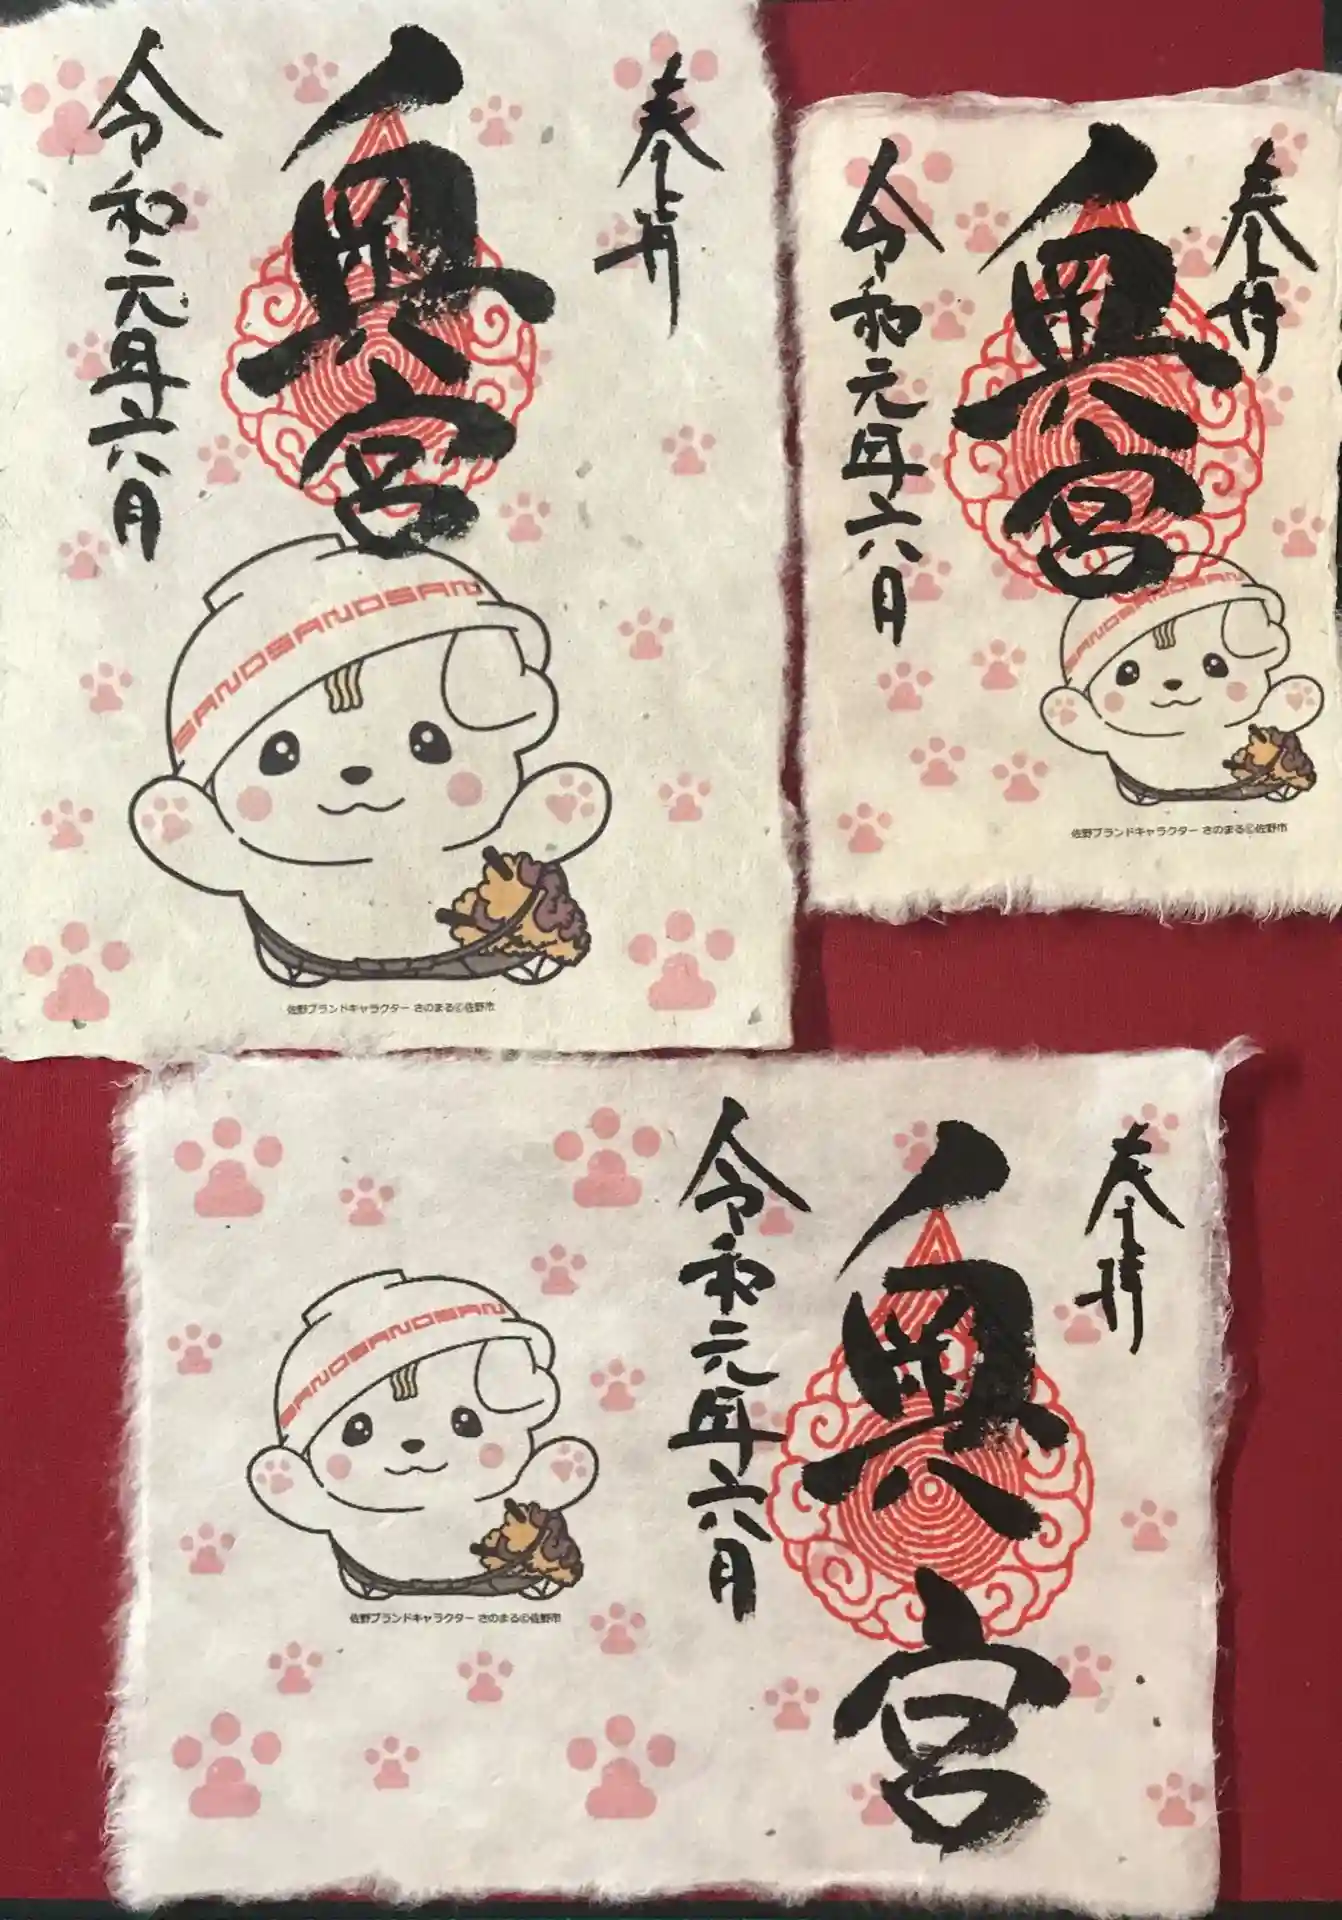 奉拝
奥宮
令和元年六月
SANOSANOSAN
佐野ブランドキャラクター さのまる©佐野市
奉拝
奥宮
令和元年六月
SANOSANOSAN
佐野ブランドキャラクター さのまる©佐野市
奉拝
奥宮
令和元年六月
SANOSANOSAN
佐野ブランドキャラクター さのまる©佐野市